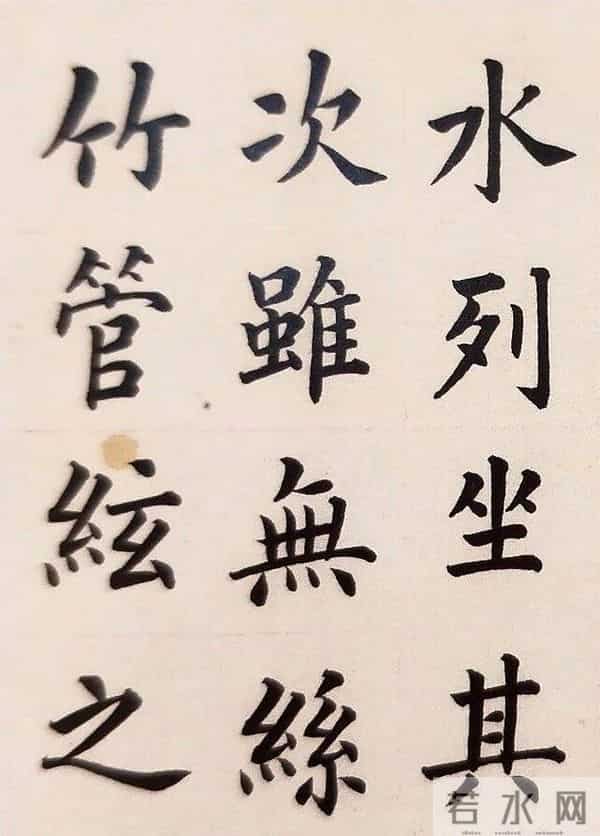 水列坐其
次雖無絲
竹管絃之
若水网